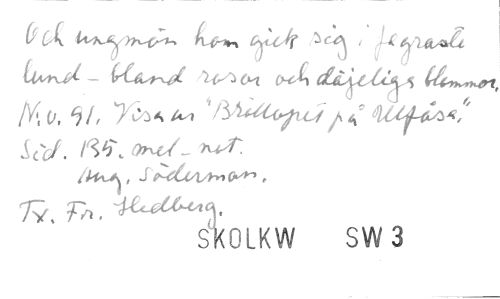 Och ungmön hon gick sig i fagraste
lund – bland rosor och däjeliga blommor.
N:o. 91. Visa ur "Bröllopet på Ulfåsa".
Sid. 135. mel - not.
Aug. Söderman.
Tx. Fr. Hedberg.
SKOLKW SW 3